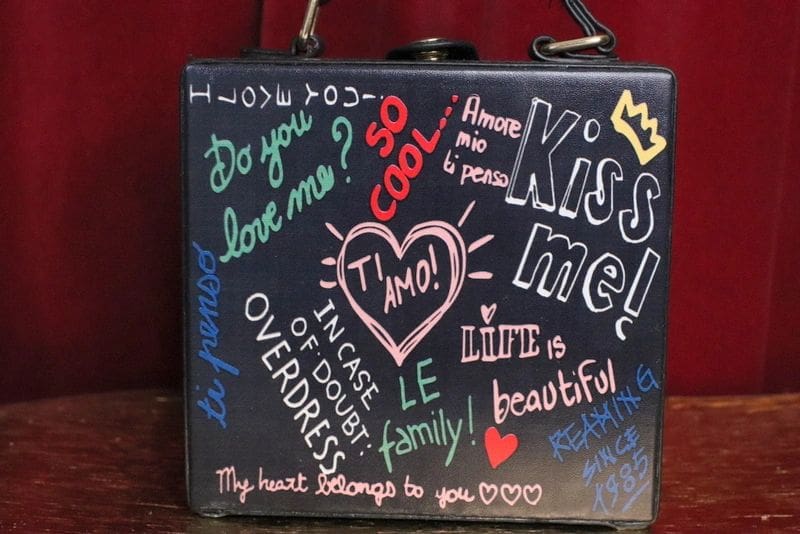 I LOVE YOU!
Do you
love me?
SO
COOL...
Amore
mio
ti penso
Kiss
me!
ti penso
TI
AMO!
IN CASE
OF DOUBT:
OVERDRESS
LIFE IS
beautiful
LE
family!
REAMING
SINCE
1985
My heart belongs to you